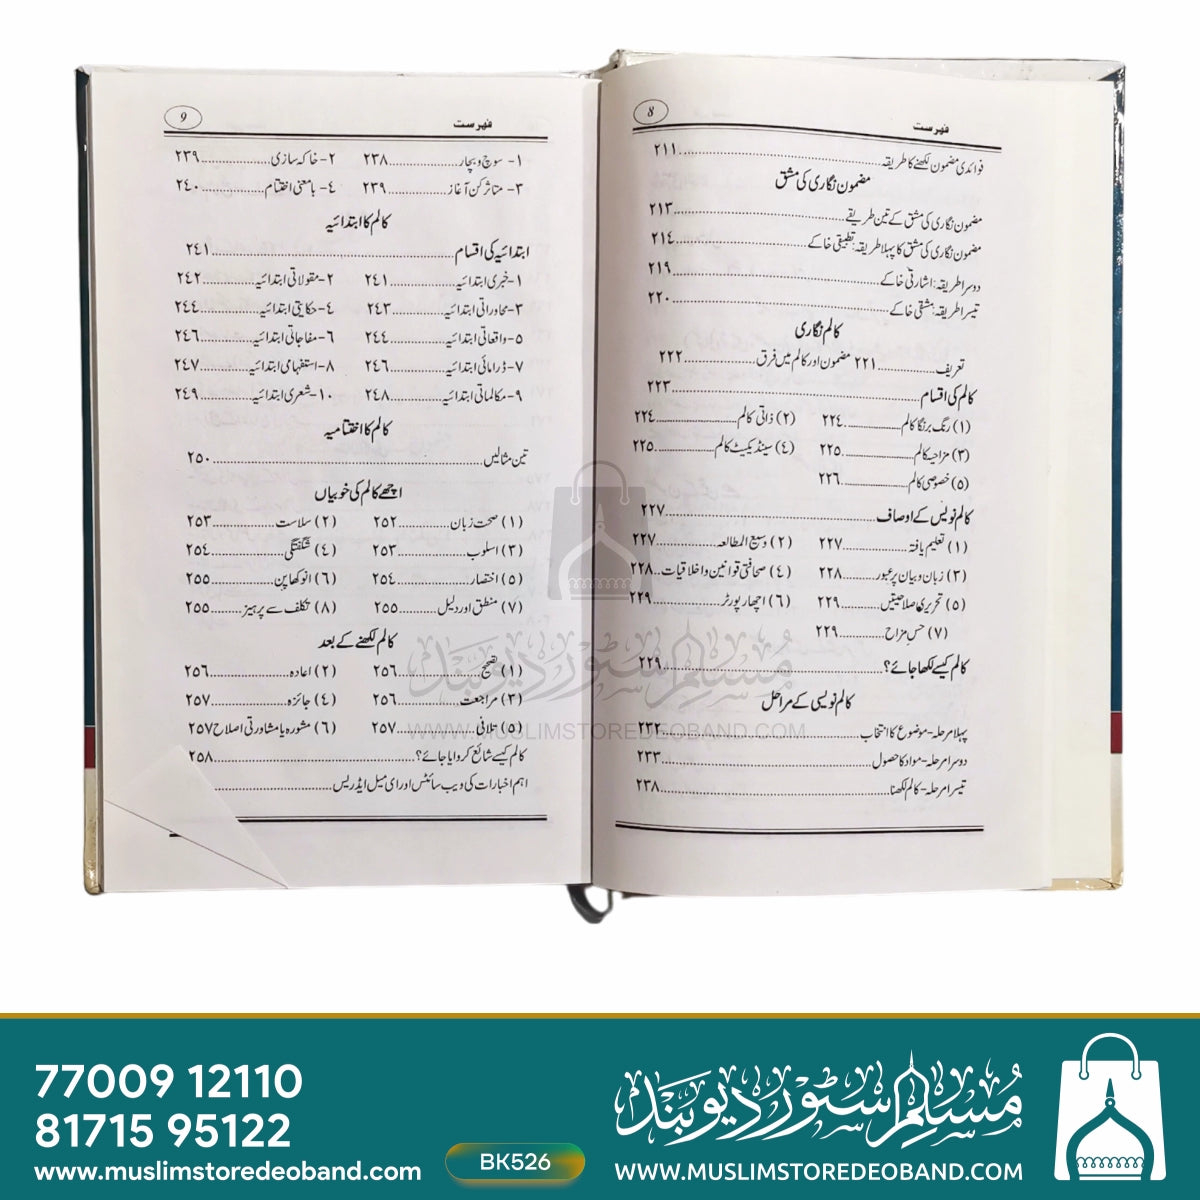 8
فہرست
فوائدی مضمون لکھنے کا طریقہ ........ ۲۱۱
مضمون نگاری کی مشق
مضمون نگاری کی مشق کے تین طریقے ........ ۲۱۳
مضمون نگاری کی مشق کا پہلا طریقہ: تطبیقی خاکے ........ ۲۱۴
دوسرا طریقہ: اشارتی خاکے ........ ۲۱۹
تیسرا طریقہ: مشقی خاکے ........ ۲۲۰
کالم نگاری
تعریف ........ ۲۲۱ مضمون اور کالم میں فرق ........ ۲۲۲
کالم کی اقسام ........ ۲۲۳
(۱) رنگ برنگا کالم ........ ۲۲۴ (۲) ذاتی کالم ........ ۲۲۴
(۳) مزاحیہ کالم ........ ۲۲۵ (۴) سینڈیکیٹ کالم ........ ۲۲۵
(۵) خصوصی کالم ........ ۲۲۶
کالم نویس کے اوصاف ........ ۲۲۷
(۱) تعلیم یافتہ ........ ۲۲۷ (۲) وسیع المطالعہ ........ ۲۲۷
(۳) زبان و بیان پر عبور ........ ۲۲۸ (۴) صحافتی قوانین و اخلاقیات ........ ۲۲۸
(۵) تحریری صلاحیتیں ........ ۲۲۹ (۶) اچھا رپورٹر ........ ۲۲۹
(۷) حسِ مزاح ........ ۲۲۹
کالم کیسے لکھا جائے؟ ........ ۲۲۹
کالم نویسی کے مراحل
پہلا مرحلہ - موضوع کا انتخاب ........ ۲۳۲
دوسرا مرحلہ - مواد کا حصول ........ ۲۳۳
تیسرا مرحلہ - کالم لکھنا ........ ۲۳۸
9
فہرست
۱- سوچ و بچار ........ ۲۳۸ ۲- خاکہ سازی ........ ۲۳۹
۳- متاثر کن آغاز ........ ۲۳۹ ۴- بامعنی اختتام ........ ۲۴۰
کالم کا ابتدائیہ
ابتدائیہ کی اقسام ........ ۲۴۱
۱- خبری ابتدائیہ ........ ۲۴۱ ۲- مقولاتی ابتدائیہ ........ ۲۴۲
۳- محاوراتی ابتدائیہ ........ ۲۴۳ ۴- حکایتی ابتدائیہ ........ ۲۴۴
۵- واقعاتی ابتدائیہ ........ ۲۴۴ ۶- مفاجاتی ابتدائیہ ........ ۲۴۶
۷- ڈرامائی ابتدائیہ ........ ۲۴۶ ۸- استفہامی ابتدائیہ ........ ۲۴۷
۹- مکالماتی ابتدائیہ ........ ۲۴۸ ۱۰- شعری ابتدائیہ ........ ۲۴۹
کالم کا اختتامیہ
تین مثالیں ........ ۲۵۰
اچھے کالم کی خوبیاں
(۱) صحت زبان ........ ۲۵۲ (۲) سلاست ........ ۲۵۳
(۳) اسلوب ........ ۲۵۳ (۴) شگفتگی ........ ۲۵۴
(۵) اختصار ........ ۲۵۴ (۶) انوکھا پن ........ ۲۵۵
(۷) منطق اور دلیل ........ ۲۵۵ (۸) تکلف سے پرہیز ........ ۲۵۵
کالم لکھنے کے بعد
(۱) تصحیح ........ ۲۵۶ (۲) اعادہ ........ ۲۵۶
(۳) مراجعت ........ ۲۵۶ (۴) جائزہ ........ ۲۵۷
(۵) تلافی ........ ۲۵۷ (۶) مشورہ یا مشاورتی اصلاح ۲۵۷
کالم کیسے شائع کروایا جائے؟ ........ ۲۵۸
اہم اخبارات کی ویب سائٹس اور ای میل ایڈریس ........
مسلم سٹور دیوبند
WWW.MUSLIMSTOREDEOBAND.COM
77009 12110
81715 95122
www.muslimstoredeoband.com
BK526
مسلم سٹور دیوبند
WWW.MUSLIMSTOREDEOBAND.COM